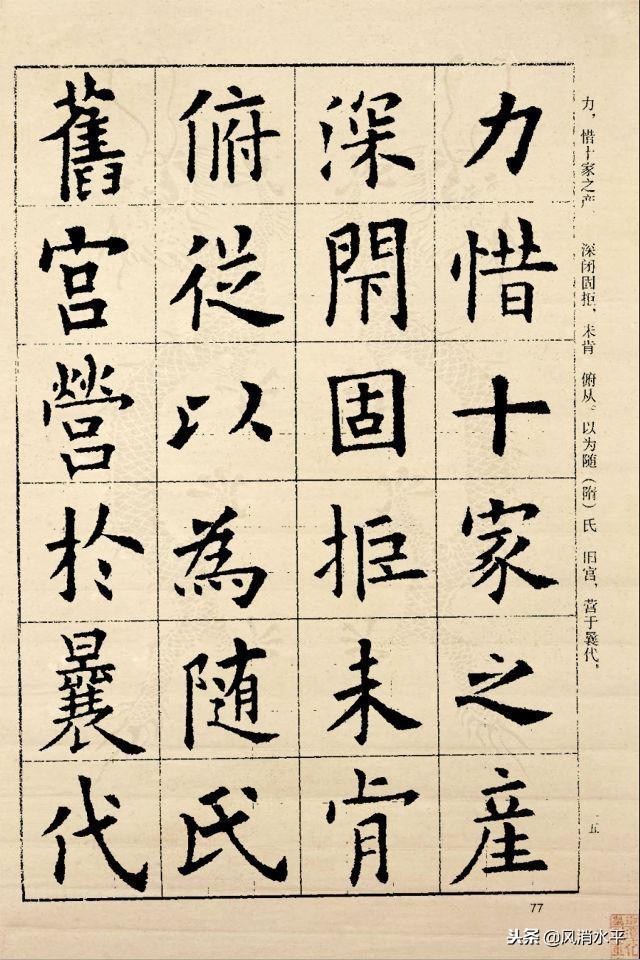 力惜十家之產
深閇固拒未肯
俯從以為随氏
舊宫營於曩代
力，惜十家之产 深闭固拒，未肯 俯从。以为随（隋）氏 旧宫，营于曩代，
一五
77
头条 @风消水平